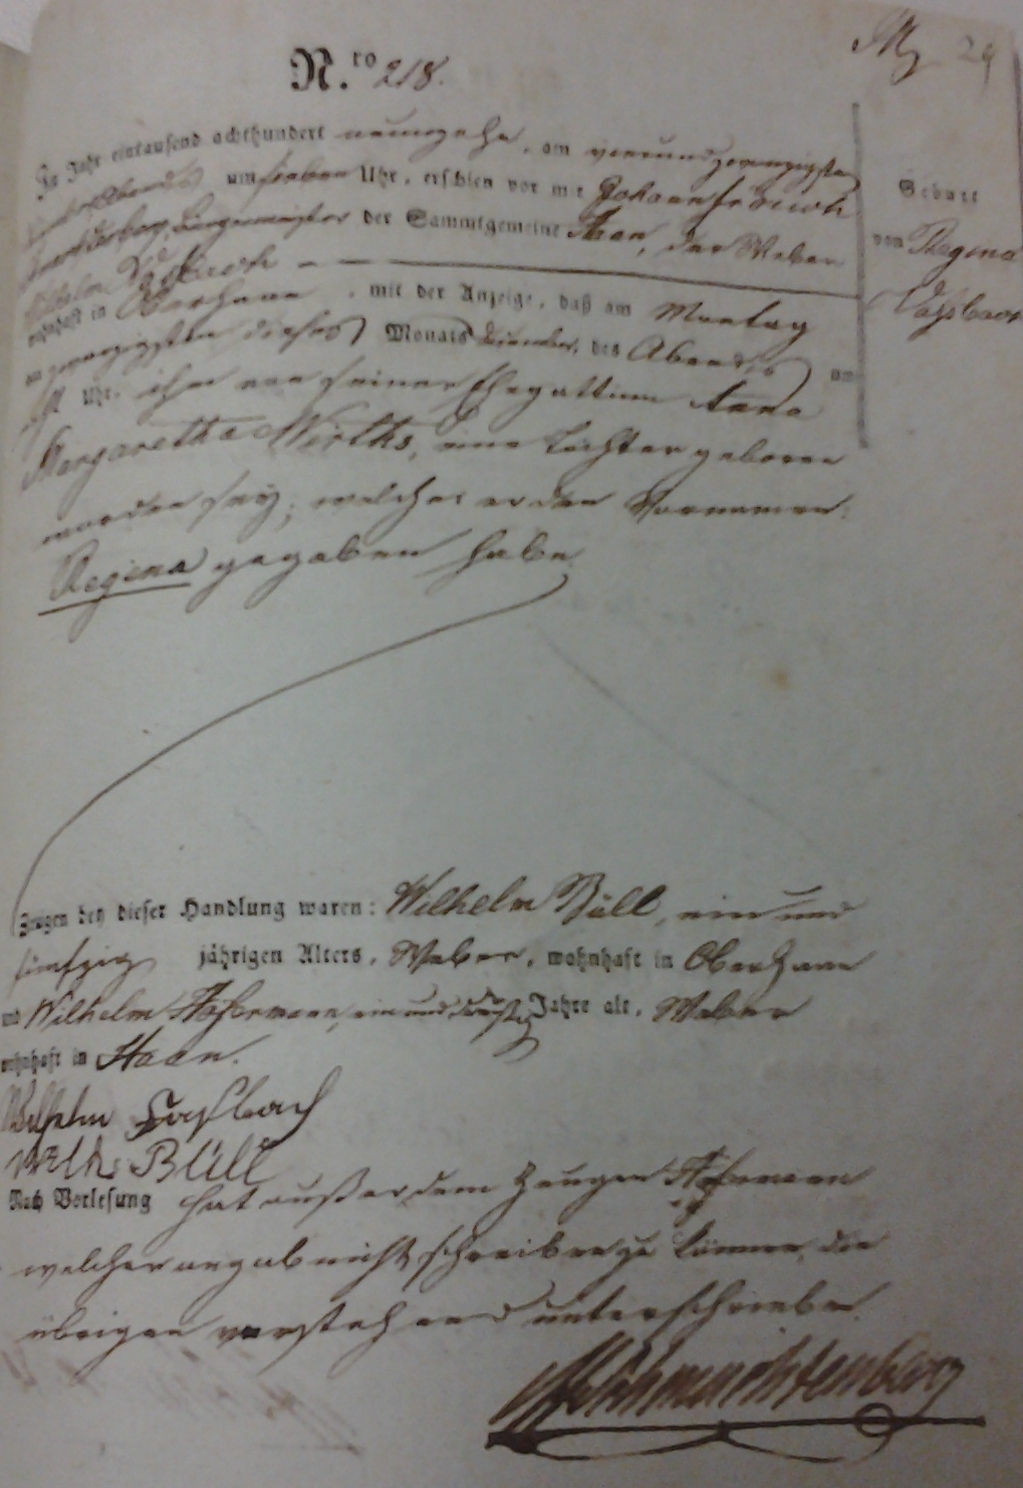 N.ro 218.
29
Im Jahr eintausend achthundert neunzehn, am vierundzwanzigsten
Abends um sieben Uhr, erschien vor mir Johann Friedrich
Bürgermeister der Sammtgemeine Haan, der Weber
Wilhelm Vaßbach
wohnhaft in Oberhaan, mit der Anzeige, daß am Montag
zwanzigsten dieses Monats December, des Abends um
Uhr, ihm von seiner Ehegattinn Anna
Margaretha Wirths, eine Tochter geboren
worden sey; welcher er den Vornamen:
Regina gegeben habe
Geburt
von Regina
Vaßbach
Zeugen bey dieser Handlung waren: Wilhelm Büll, ein und
fünfzig jährigen Alters, Weber, wohnhaft in Oberhaan
und Wilhelm ein und Jahre alt, Weber
wohnhaft in Haan.
Wilhelm Faßbach
Büll
Nach Vorlesung hat außer dem Zeugen
welcher angab nicht schreiben zu können, die
übrigen vorstehend unterschrieben.